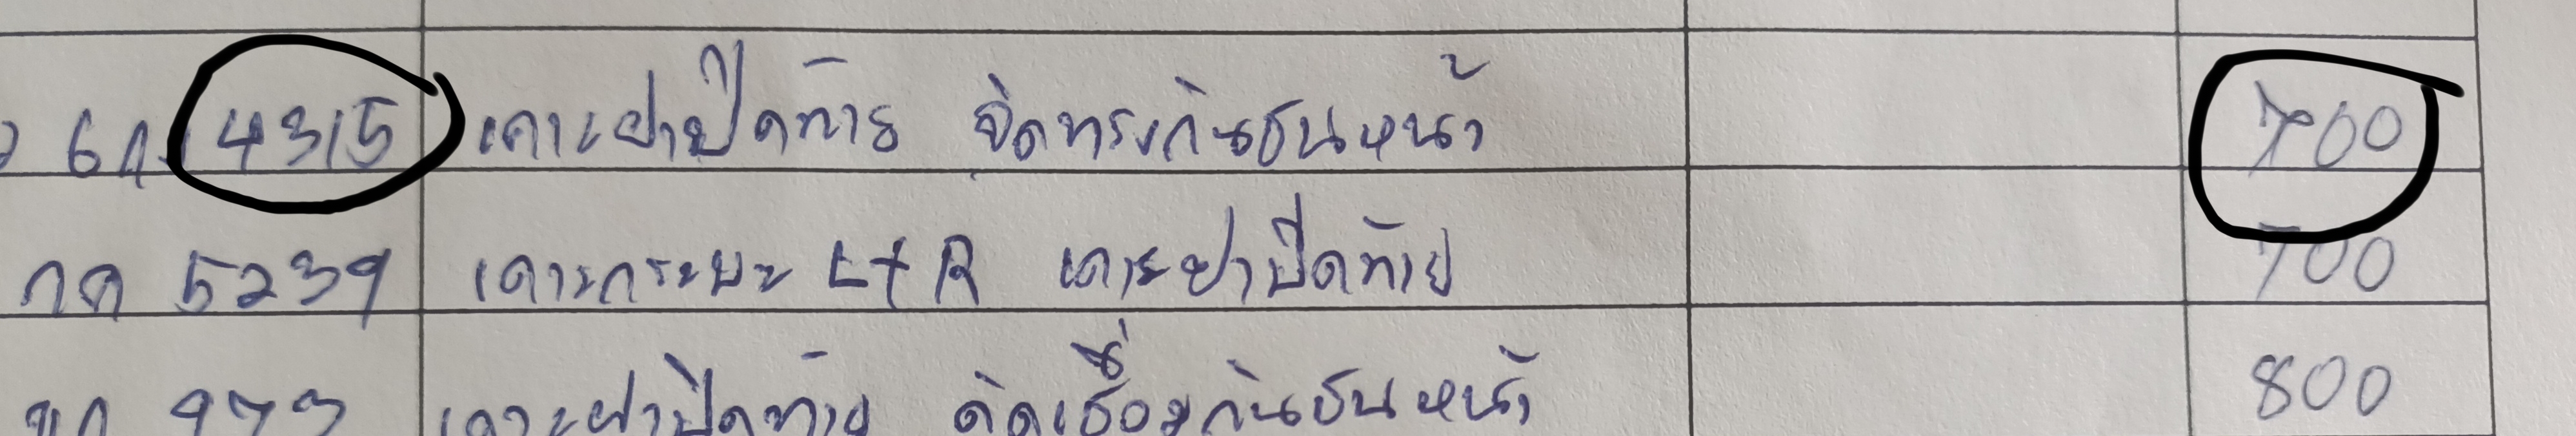 6ก 4315 เคาะฝาปิดท้าย จัดทรงกันชนหน้า 700
กค 5239 เคาะกระบะ L+R เคาะฝาปิดท้าย 700
เคาะฝาปิดท้าย ดัดเชื่อมกันชนหน้า 800